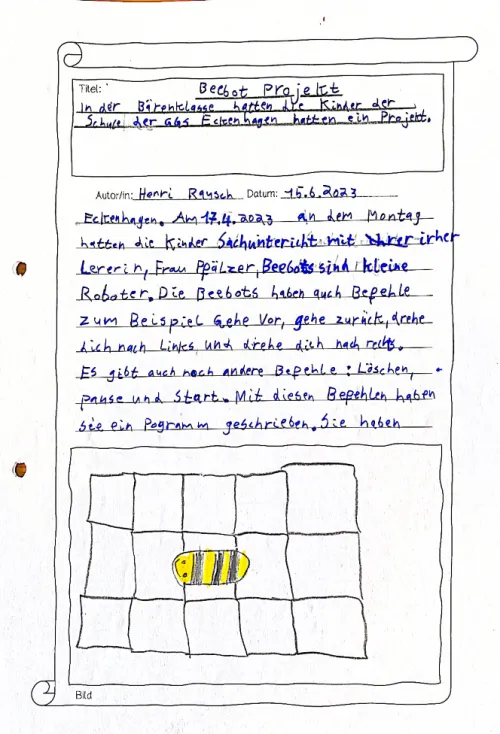 Titel: Beebot Projekt
In der Bärenklasse hatten die Kinder der
Schule der GGS Eckenhagen hatten ein Projekt.
Autor/in: Henri Rausch Datum: 15.6.2023
Eckenhagen. Am 17.4.2023 an dem Montag
hatten die Kinder Sachunterricht mit irher
Lererin, Frau Ppälzer, Beebots sind kleine
Roboter. Die Beebots haben auch Befehle
zum Beispiel Gehe Vor, gehe zurück, drehe
dich nach Links, und drehe dich nach rechts.
Es gibt auch noch andere Bepehle: Löschen,
pause und Start. Mit diesen Bepehlen haben
sie ein Pogramm geschrieben. Sie haben
Bild